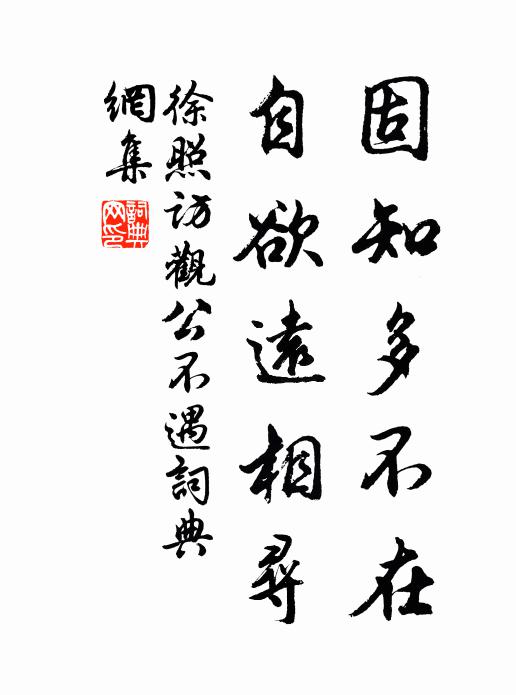 固知多不在
自欲遠相尋
徐照訪觀公不遇詞典
網集
詞典網印